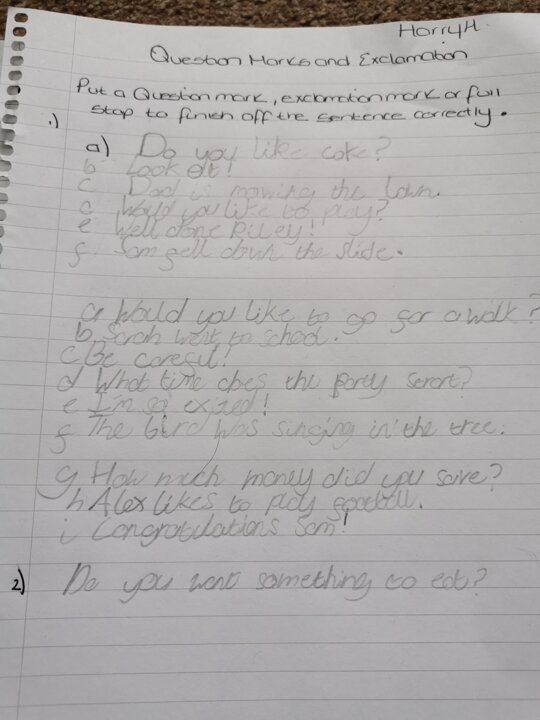 Harry H.
Question Marks and Exclamation
Put a Question mark, exclamation mark or full
stop to finish off the sentence correctly.
1)
a) Do you like coke?
b Look at!
c Dad is mowing the lawn.
d Would you like to play?
e Well done Riley!
f Sam fell down the slide.
a Would you like to go for a walk?
b, Sarah went to school.
c Be careful!
d What time does the party start?
e I'm so exited!
f The bird was singing in the tree.
g How much money did you save?
h Alex likes to play football.
i Congratulations Sam!
2) Do you want something to eat?